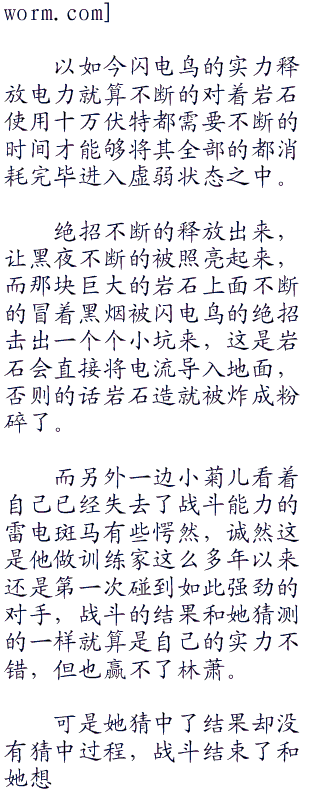 worm.com]
以如今闪电鸟的实力释
放电力就算不断的对着岩石
使用十万伏特都需要不断的
时间才能够将其全部的都消
耗完毕进入虚弱状态之中。
绝招不断的释放出来，
让黑夜不断的被照亮起来，
而那块巨大的岩石上面不断
的冒着黑烟被闪电鸟的绝招
击出一个个小坑来，这是岩
石会直接将电流导入地面，
否则的话岩石造就被炸成粉
碎了。
而另外一边小菊儿看着
自己已经失去了战斗能力的
雷电斑马有些愕然，诚然这
是他做训练家这么多年以来
还是第一次碰到如此强劲的
对手，战斗的结果和她猜测
的一样就算是自己的实力不
错，但也赢不了林萧。
可是她猜中了结果却没
有猜中过程，战斗结束了和
她想